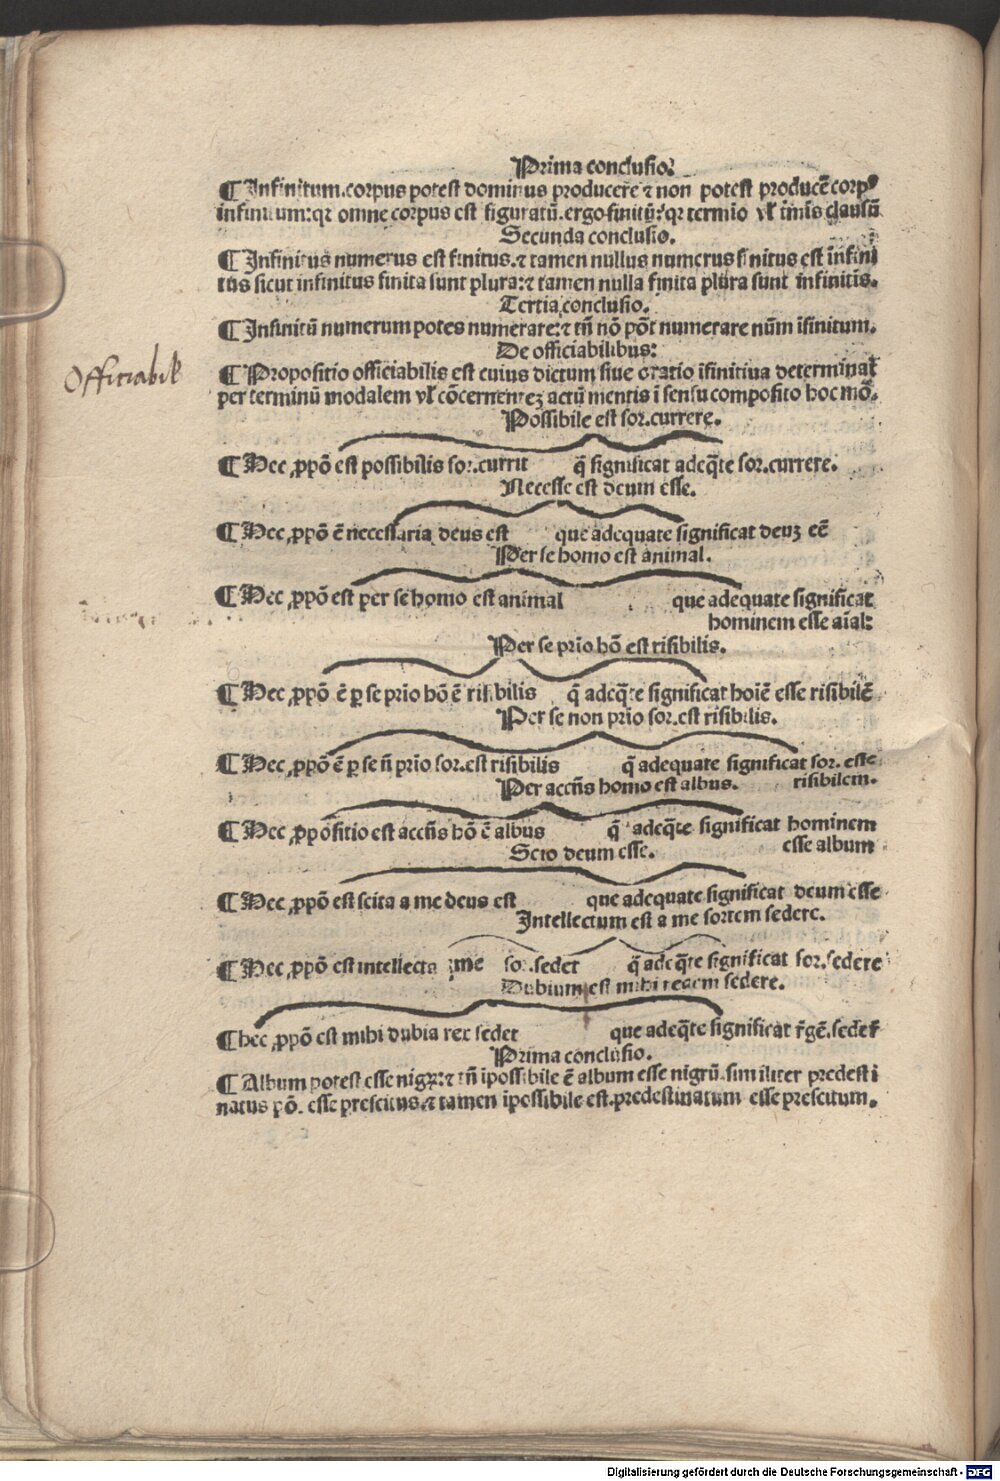 Prima conclusio.
¶ Infinitum.corpus potest dominus producere ⁊ non potest producē corpꝰ
infinitum:qꝛ omne corpus est figuratū.ergo finitū:qꝛ termio vł t̄mīs clausū
Secunda conclusio.
¶ Infinitus numerus est finitus.⁊ tamen nullus numerus finitus est infini
tus sicut infinitus finita sunt plura:⁊ tamen nulla finita plura sunt infinitis.
Tertia conclusio.
¶ Infinitū numerum potes numerare:⁊ tn̄ nō pōt numerare nūm īfinitum.
De officiabilibus:
Officiabile
¶ Propositio officiabilis est cuius dictum siue oratio īfinitiua determinat̄
per terminū modalem vł cōcernentēꝫ actū mentis ī sensu composito hoc mō.
Possibile est sor.currere.
¶ Hec ꝓpō est possibilis sor.currit q̄ significat adeq̄te sor.currere.
Necesse est deum esse.
¶ Hec ꝓpō ē necessaria deus est que adequate significat deuꝫ eē
Per se homo est animal.
¶ Hec ꝓpō est per se homo est animal que adequate significat
hominem esse aīal:
Per se prio hō est risibilis.
¶ Hec ꝓpō ē ꝑ se prio hō ē risibilis q̄ adeq̄te significat hoīē esse risibilē
Per se non prio sor.est risibilis.
¶ Hec ꝓpō ē ꝑ se n̄ prio sor.est risibilis q̄ adequate significat sor. esse
Per accn̄s homo est albus. risibilem.
¶ Hec ꝓpositio est accn̄s hō ē albus q̄ adeq̄te significat hominem
Scio deum esse. esse album
¶ Hec ꝓpō est scita a me deus est que adequate significat deum esse
Intellectum est a me sortem sedere.
¶ Hec ꝓpō est intellecta a me sor.sedet q̄ adeq̄te significat sor.sedere
Dubium est mihi regem sedere.
¶ hec ꝓpō est mihi dubia rex sedet que adeq̄te significat r̄gē.sedeř
Prima conclusio.
¶ Album potest esse nigꝝ:⁊ tn̄ īpossibile ē album esse nigrū.similiter predesti
natus pō. esse prescitus.⁊ tamen īpossibile est.predestinatum esse prescitum.
Digitalisierung gefördert durch die Deutsche Forschungsgemeinschaft - DFG